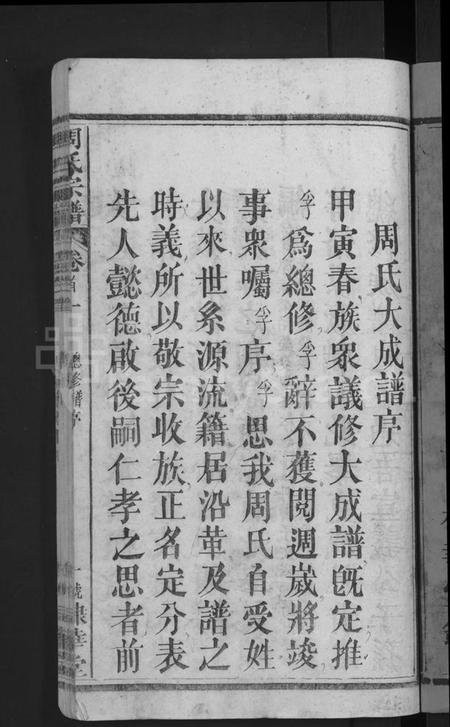 周氏大成譜序
甲寅春族衆議修大成譜旣定推
孚爲總修孚辭不獲閱週嵗將竣
事衆囑孚序孚思我周氏自受姓
以來世系源流籍居沿革及譜之
時義所以敬宗收族正名定分表
先人懿德啟後嗣仁孝之思者前
周氏宗譜 卷首一 總修譜序